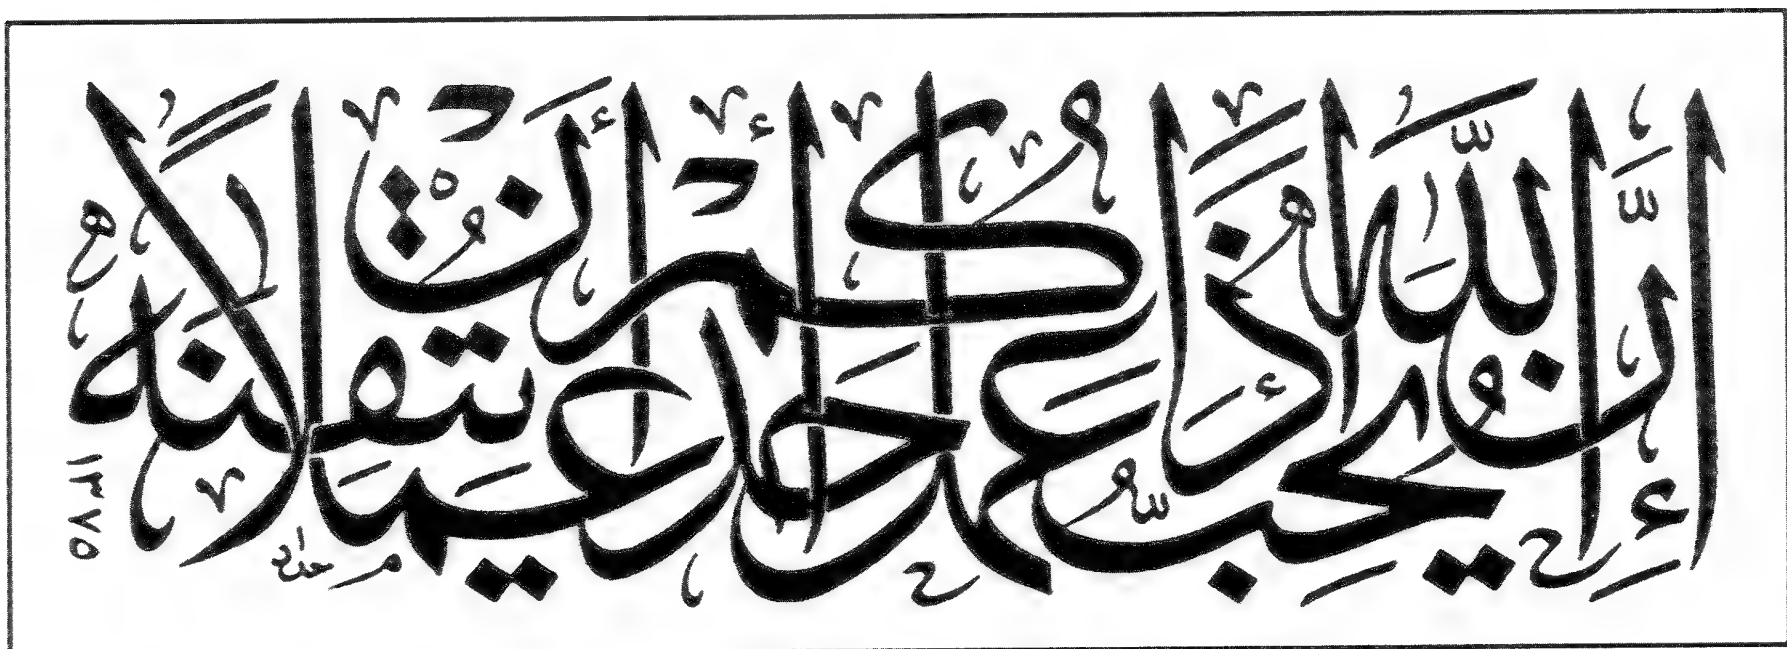 إِنَّ اللَّهَ يُحِبُّ إِذَا عَمِلَ أَحَدُكُمْ عَمَلًا أَنْ يُتْقِنَهُ
١٣٧٥